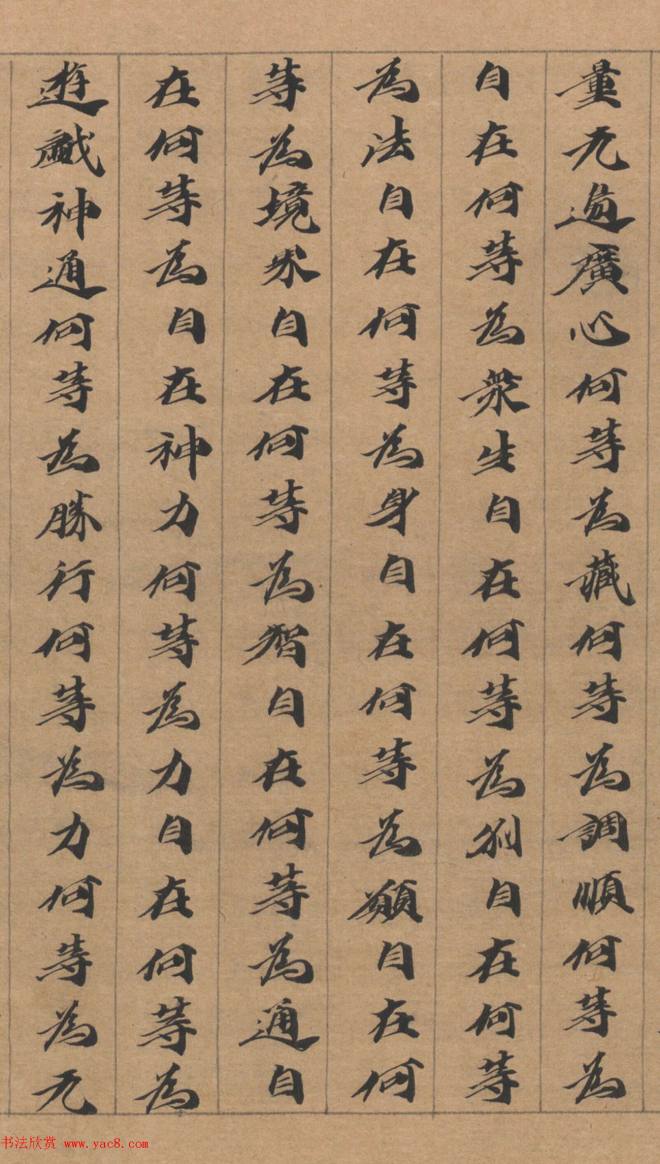 量无邊廣心何等為藏何等為調順何等為
自在何等為衆生自在何等為刹自在何等
為法自在何等為身自在何等為願自在何
等為境界自在何等為智自在何等為通自
在何等為自在神力何等為力自在何等為
遊戲神通何等為勝行何等為力何等為无
书法欣赏 www.yac8.com